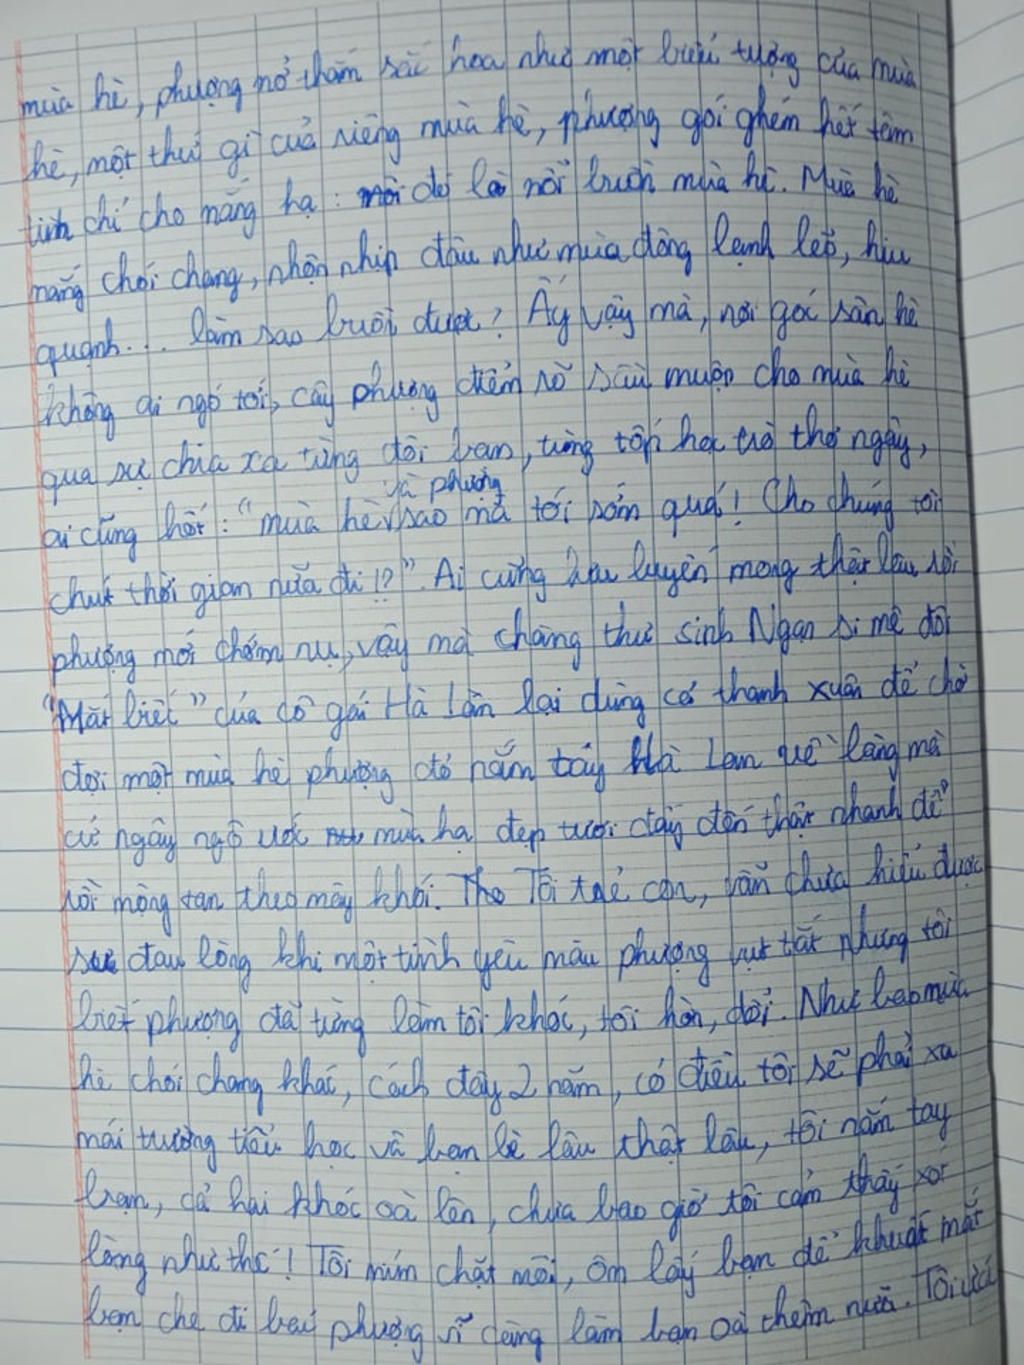 mùa hè, phượng nở thắm sắc hoa như một biểu tượng của mùa
hè, một thứ gì của riêng mùa hè, phượng gói ghém hết tâm
tình chỉ cho nắng hạ: đó là nỗi buồn mùa hè. Mùa hè
nắng chói chang, nhộn nhịp đâu như mùa đông lạnh lẽo, hiu
quạnh... làm sao buồn được? Ấy vậy mà, nơi góc sân hè
không ai ngó tới, cây phượng điểm rõ sầu muộn cho mùa hè
qua sự chia xa từng đôi bạn, từng tốp học trò thơ ngây,
và phượng
ai cũng hốt: "mùa hè sao mà tới sớm quá! Cho chúng tôi
chút thời gian nữa đi!?" Ai cũng lưu luyến mong thật lâu rồi
phượng mới chớm nụ, vậy mà chàng thư sinh Ngạn si mê đôi
"Mắt biếc" của cô gái Hà Lan lại dùng cả thanh xuân để chờ
đợi một mùa hè phượng đỏ nắm tay Hà Lan về làng mà
cứ ngây ngô ước mùa hạ đẹp tươi đấy đến thật nhanh để
rồi mộng tan theo mây khói. Tôi trẻ con, vẫn chưa hiểu được
sự đau lòng khi một tình yêu màu phượng vụt tắt nhưng tôi
biết phượng đã từng làm tôi khóc, tôi hờn, dỗi. Như bao mùa
hè chói chang khác, cách đây 2 năm, có điều tôi sẽ phải xa
mái trường tiểu học và bạn bè lâu thật lâu, tôi nắm tay
bạn, cả hai khóc oà lên, chưa bao giờ tôi cảm thấy xót
lòng như thế! Tôi mím chặt môi, ôm lấy bạn để khuất mắt
bạn che đi phượng vĩ càng làm bạn oà thêm nữa. Tôi